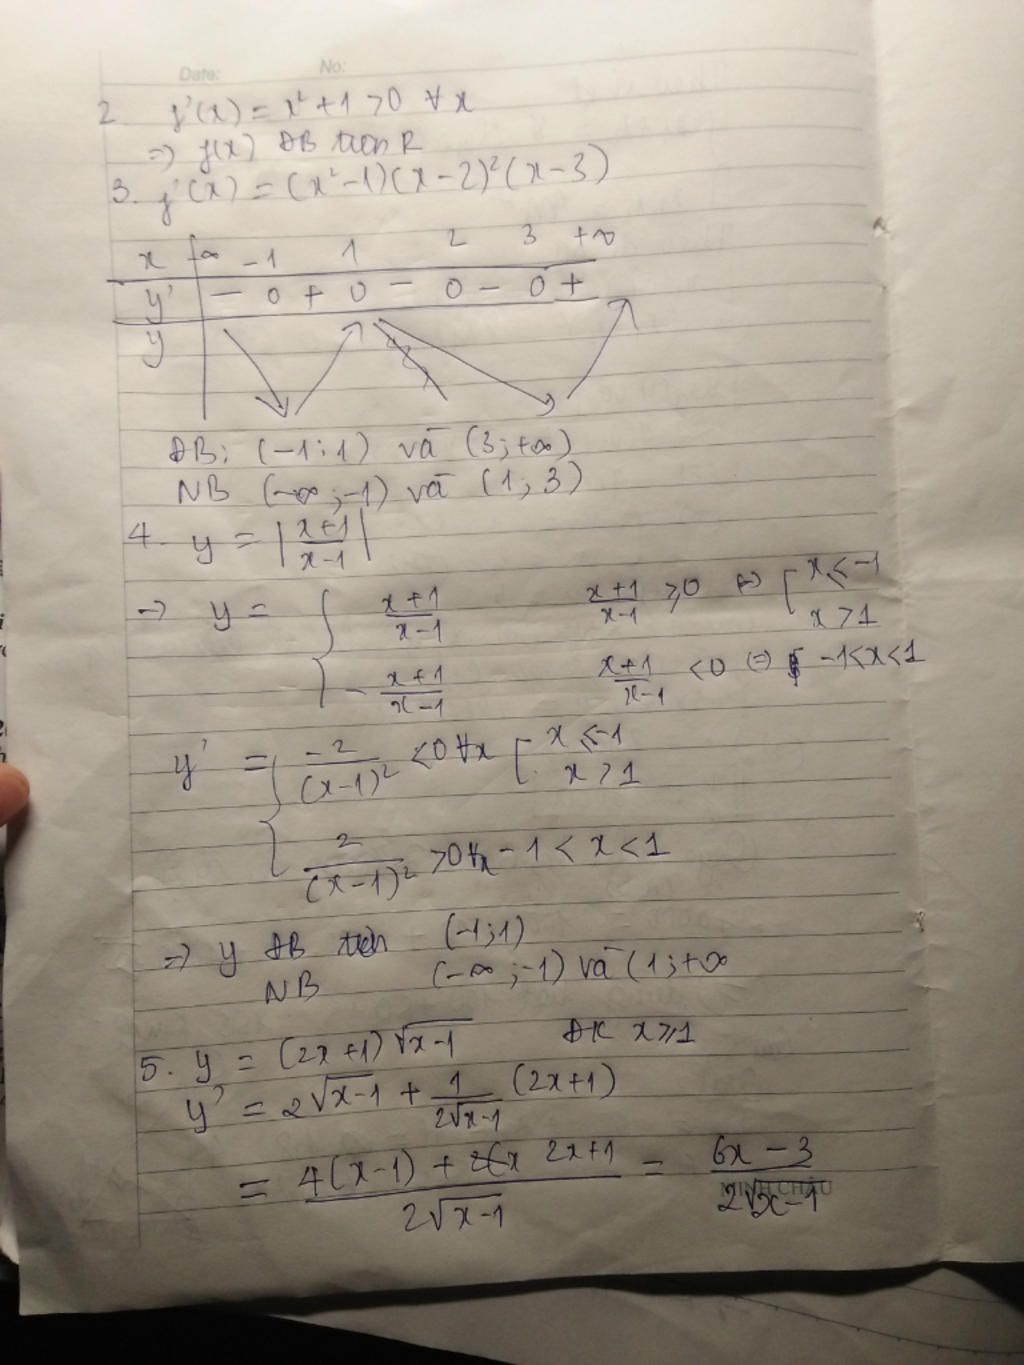 Date: No:
2. f'(x) = x² + 1 > 0 ∀x
=> f(x) ĐB trên R
3. f'(x) = (x²-1)(x-2)²(x-3)
x -∞ -1 1 2 3 +∞
y' - 0 + 0 - 0 - 0 +
y
ĐB: (-1;1) và (3;+∞)
NB (-∞;-1) và (1;3)
4. y = |x+1/x-1|
=> y = { x+1/x-1 x+1/x-1 ≥ 0 <=> [ x ≤ -1
x > 1
-x+1/x-1 x+1/x-1 < 0 <=> -1<x<1
y' = { -2/(x-1)² < 0 ∀x [ x ≤ -1
x > 1
2/(x-1)² > 0 ∀x -1 < x < 1
=> y ĐB trên (-1;1)
NB (-∞;-1) và (1;+∞
5. y = (2x+1)√x-1 ĐK x ≥ 1
y' = 2√x-1 + 1/2√x-1 (2x+1)
= 4(x-1) + 2x+1/2√x-1 = 6x-3/2√x-1
MINH CHÂU